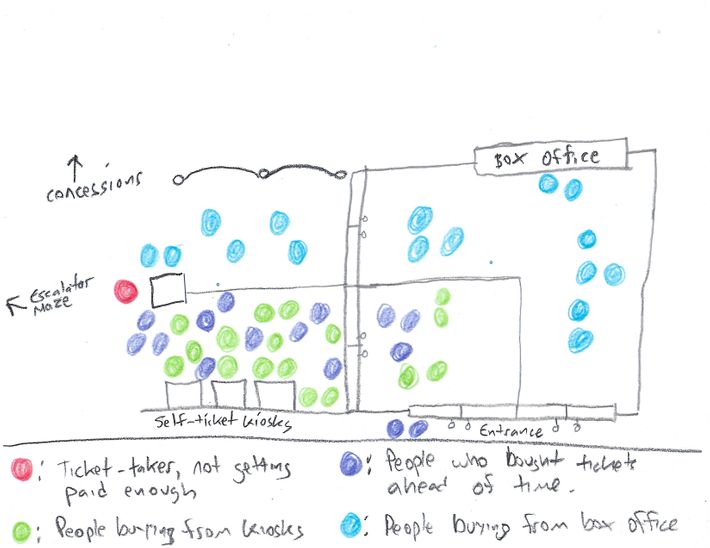 Box Office
↑
Concessions
← Escalator
Maze
Self-ticket kiosks
Entrance
: Ticket-taker, not getting
paid enough
: People who bought tickets
ahead of time.
: People buying from kiosks
: People buying from box office